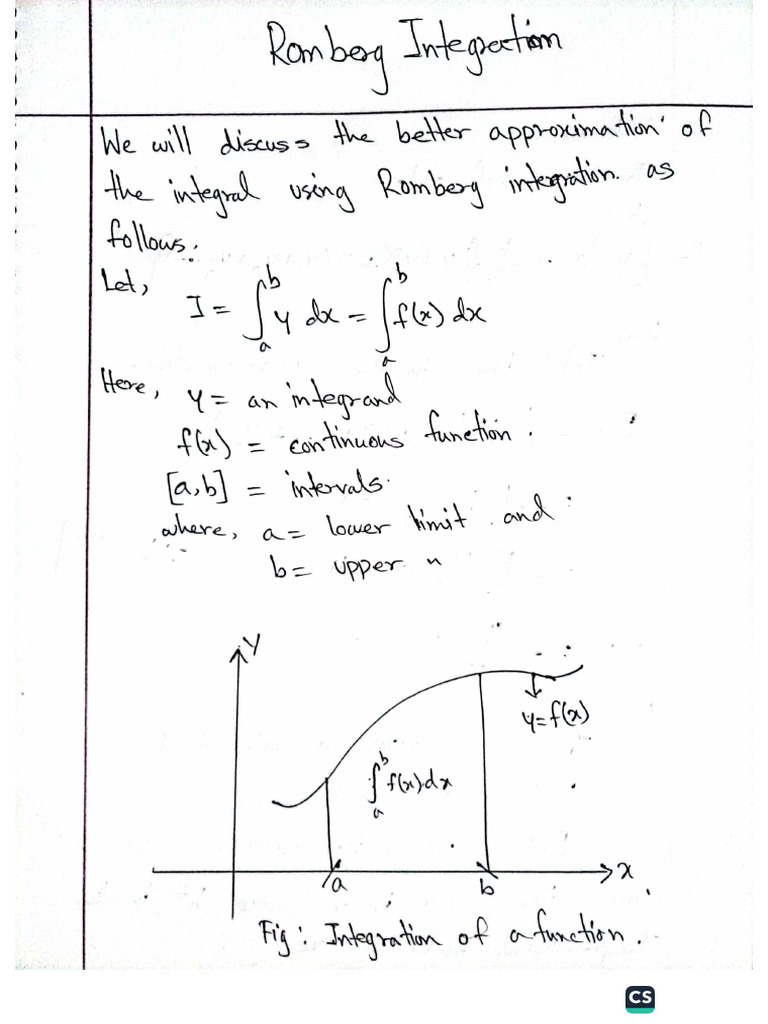 Romberg Integration
We will discuss the better approximation of
the integral using Romberg integration. as
follows.
Let,
I = ∫_a^b y dx = ∫_a^b f(x) dx
Here, y = an integrand
f(x) = continuous function.
[a,b] = intervals.
where, a = lower limit and
b = upper "
y
y=f(x)
∫_a^b f(x).dx
a b x
Fig: Integration of a function.
CS